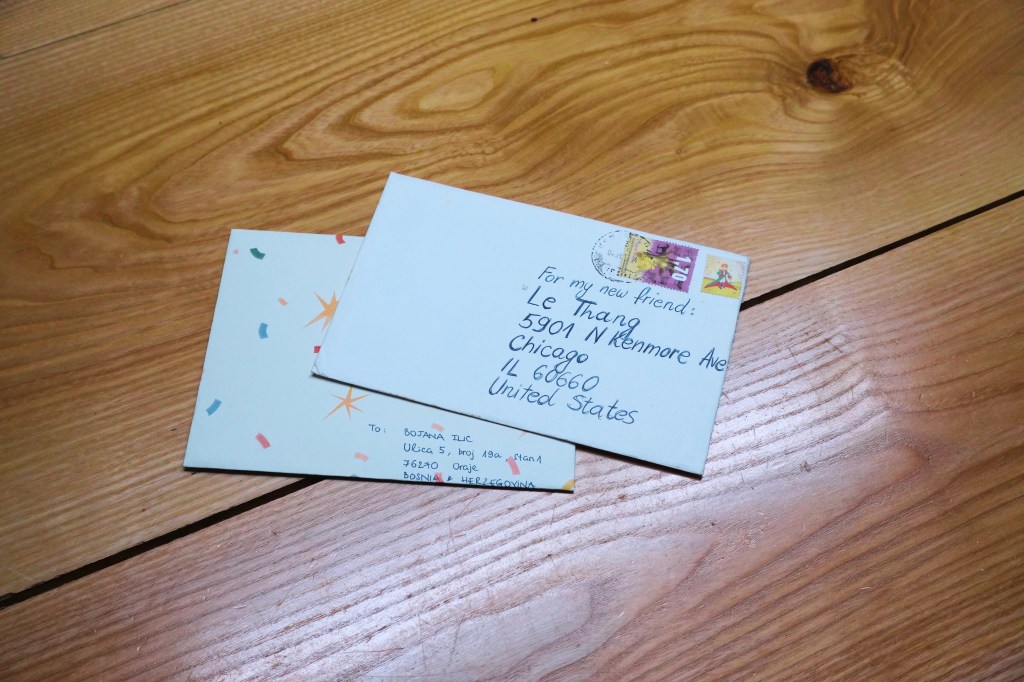 1.70
For my new friend:
Le Thang
5901 N Kenmore Ave
Chicago
IL 60660
United States
To: BOJANA ILIC
Ulica 5, broj 19a, stan 1
76270 Orasje
BOSNIA & HERZEGOVINA